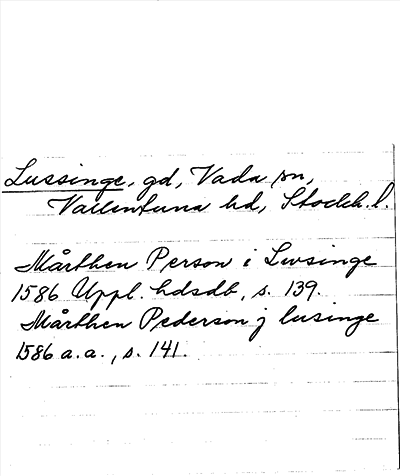 Lussinge, gd, Vada sn,
Vallentuna hd, Stockh. l.
Mårthen Person i Lwsinge
1586 Uppl. hdsdb, s. 139.
Mårthen Pederson j lusinge
1586 a.a., s. 141.